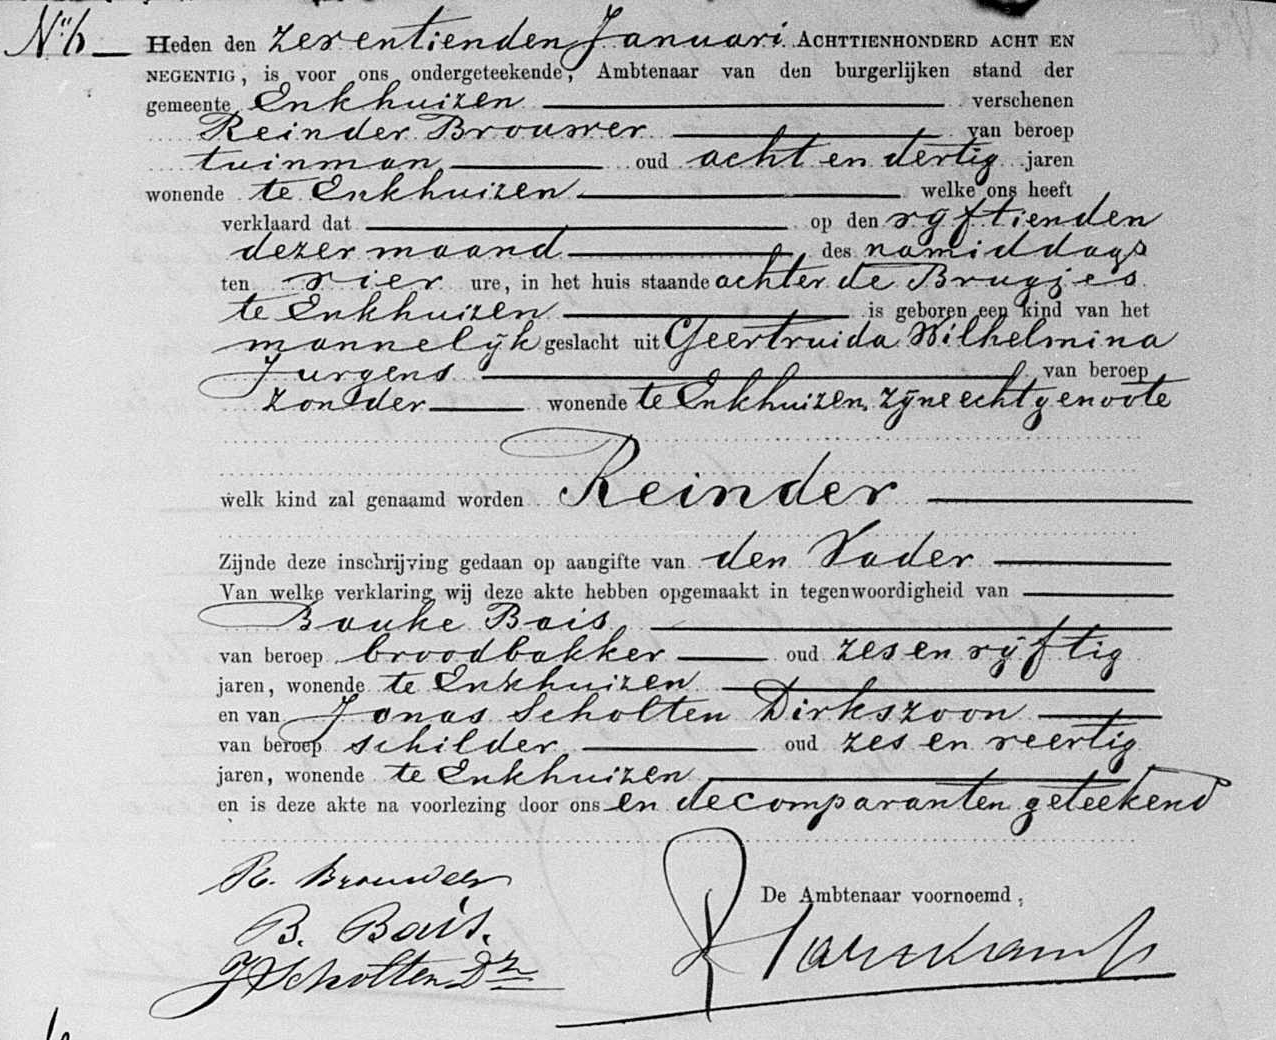 No. 6 Heden den zeventienden Januari ACHTTIENHONDERD ACHT EN
NEGENTIG, is voor ons ondergeteekende, Ambtenaar van den burgerlijken stand der
gemeente Enkhuizen verschenen
Reinder Brouwer van beroep
tuinman oud acht en dertig jaren
wonende te Enkhuizen welke ons heeft
verklaard dat op den vijftienden
dezer maand des namiddags
ten vier ure, in het huis staande achter de Brugjes
te Enkhuizen is geboren een kind van het
mannelijk geslacht uit Geertruida Wilhelmina
Jurgens van beroep
zonder wonende te Enkhuizen, zijne echtgenoote
welk kind zal genaamd worden Reinder
Zijnde deze inschrijving gedaan op aangifte van den Vader
Van welke verklaring wij deze akte hebben opgemaakt in tegenwoordigheid van
Bauke Bais
van beroep broodbakker oud zes en vijftig
jaren, wonende te Enkhuizen
en van Jonas Scholten Dirkszoon
van beroep schilder oud zes en veertig
jaren, wonende te Enkhuizen
en is deze akte na voorlezing door ons en de comparanten geteekend
R. Brouwer
De Ambtenaar voornoemd,
B. Bais.
J Scholten Dz